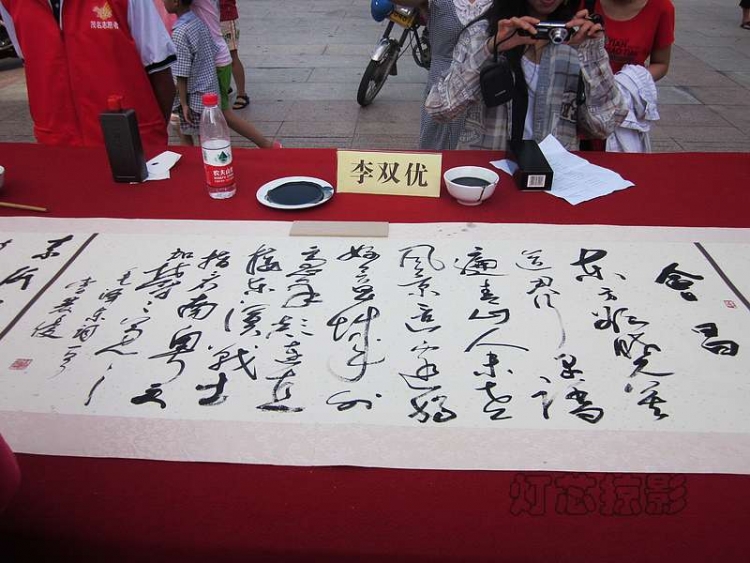 茂名志愿者
农夫山泉
李双优
會昌
东方欲晓莫
道君行早踏
遍青山人未老
风景这边独
好會昌城外
高峰颠连直
接东溟战士
指看南粤更
加郁々葱々
毛泽东词
灯芯掠影